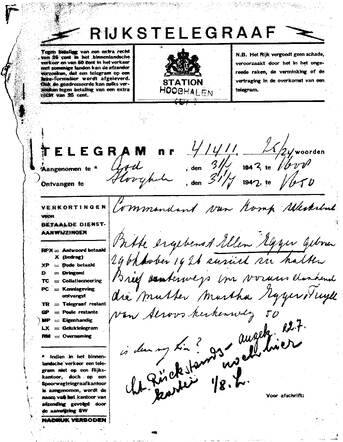 RIJKSTELEGRAAF
Tegen betaling van een extra recht
van 25 cent in het binnenlandsche
verkeer en van 50 cent in het verkeer
met sommige landen kan de afzender
verzoeken, dat een telegram op een
luxe-formulier wordt afgeleverd.
Ook de geadresseerde kan zulks verzoeken tegen betaling van een extra
recht van 25 cent.
STATION
HOOGHALEN
N.B. Het Rijk vergoedt geen schade,
veroorzaakt door het in het ongereede raken, de verminking of de
vertraging in de overkomst van een
telegram.
TELEGRAM nr 41411 25/24 woorden
Aangenomen te , den 31/7 1942, 1600
Ontvangen te Hooghalen , den 31/7 1942 1650
VERKORTINGEN
VOOR
BETAALDE DIENST-
AANWIJZINGEN
RPX = Antwoord betaald
X (bedrag)
XP = Bode betaald
D = Dringend
TC = Collationneering
PC = Kennisgeving
ontvangst
TR = Telegraf restant
GP = Poste restante
MP = Eigenhandig
LX = Gelukstelegram
RM = Overseining
* Indien in het binnenlandsche verkeer een telegram niet op een Rijkskantoor, doch op een
Spoorwegtelegraafkantoor
is aangenomen, wordt de
naam van het kantoor van
afzending gevolgd door
de aanwijzing SW
NADRUK VERBODEN
Commandant van Kamp
Bitte ergebenst Ellen Egger geboren
29 Oktober 1926 zurück zu halten
Brief unterwegs im voraus dankend
die Mutter Martha Egger
van 50
noch hier
kartei 1/8. L.
Voor afschrift: